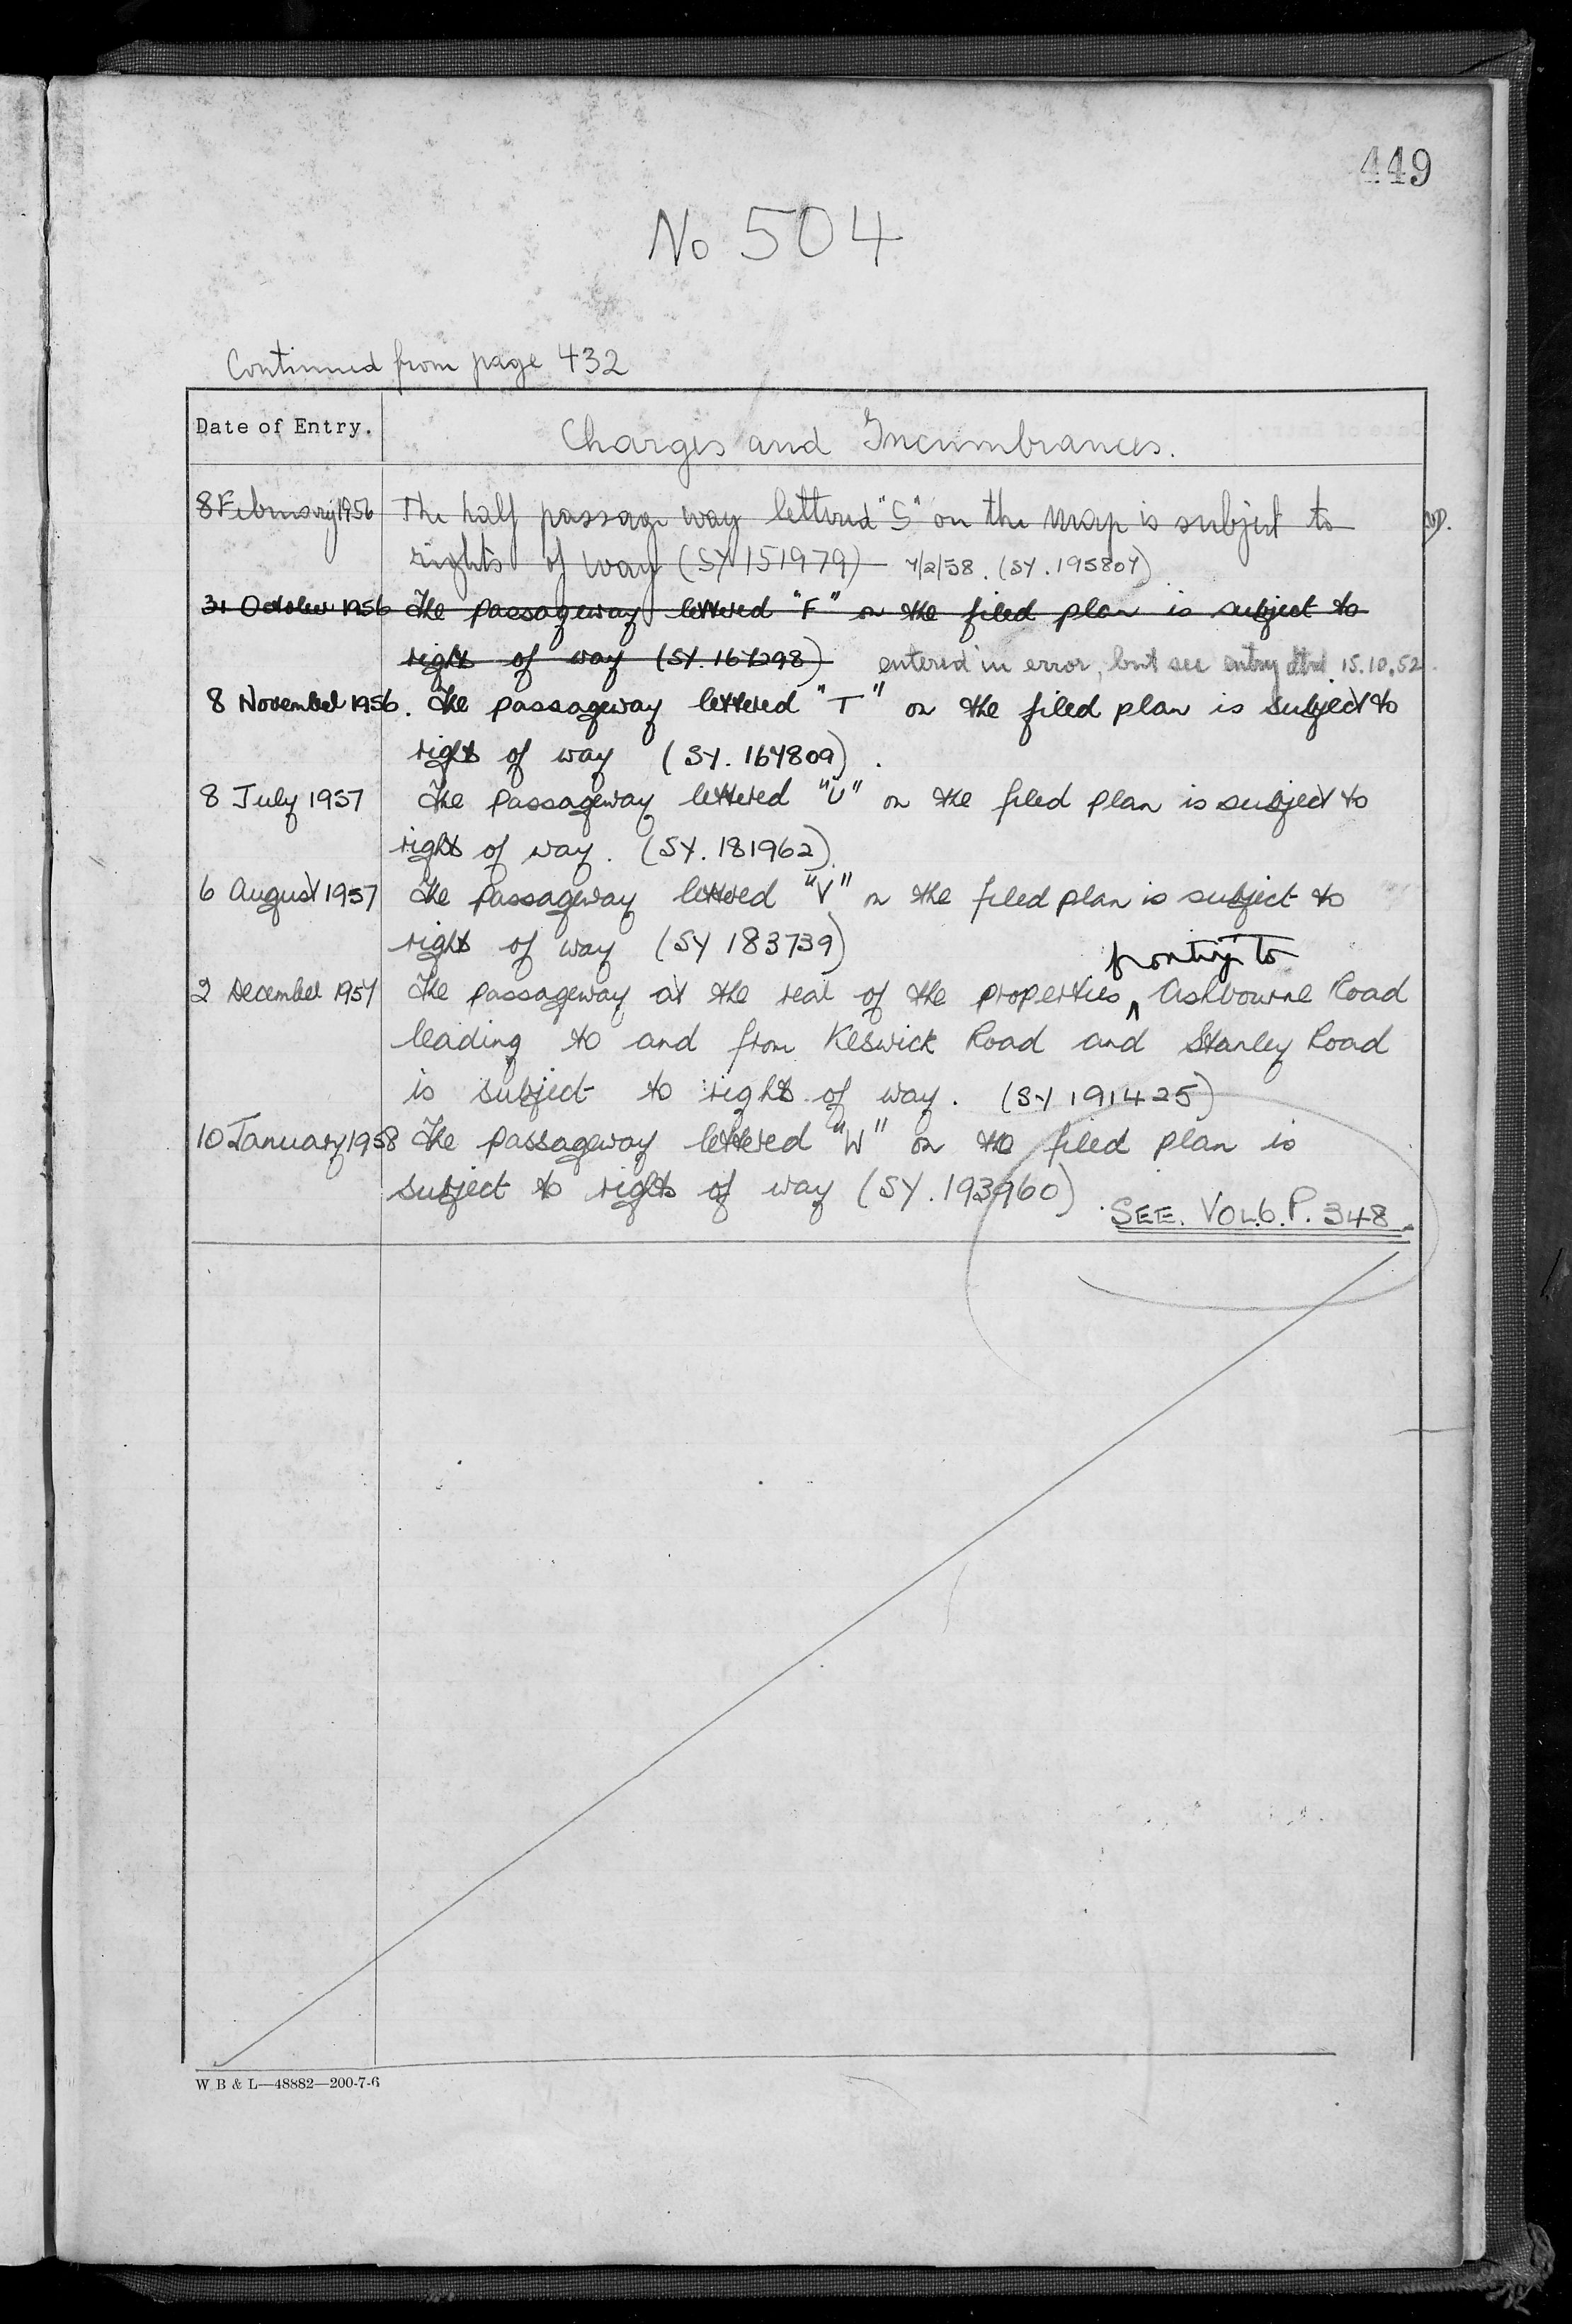 449
No 504
Continued from page 432
Date of Entry. Charges and Incumbrances.
8 February 1956 The half passage way lettered "S" on the map is subject to
rights of way (SY 151979) 7/2/58. (SY. 195807)
31 October 1956 The passageway lettered "F" on the filed plan is subject to
rights of way (SY. 167298) entered in error, but see entry dtd 15.10.52.
8 November 1956. The passageway lettered "T" on the filed plan is subject to
rights of way (SY. 167809).
8 July 1957 The passageway lettered "U" on the filed plan is subject to
rights of way. (SY. 181962).
6 August 1957 The passageway lettered "V" on the filed plan is subject to
rights of way (SY 183739)
fronting to
2 December 1957 The passageway at the rear of the properties ^ Ashbourne Road
leading to and from Keswick Road and Stanley Road
is subject to rights of way. (SY 191425)
10 January 1958 The passageway lettered "W" on the filed plan is
subject to rights of way (SY. 193960)
SEE. VOL.6. P. 348.
W B & L—48882—200-7-6